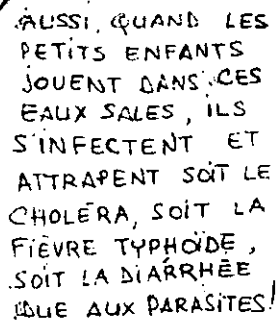 AUSSI, QUAND LES
PETITS ENFANTS
JOUENT DANS CES
EAUX SALES, ILS
S'INFECTENT ET
ATTRAPENT SOIT LE
CHOLÉRA, SOIT LA
FIÈVRE TYPHOÏDE,
SOIT LA DIARRHÉE
DUE AUX PARASITES!